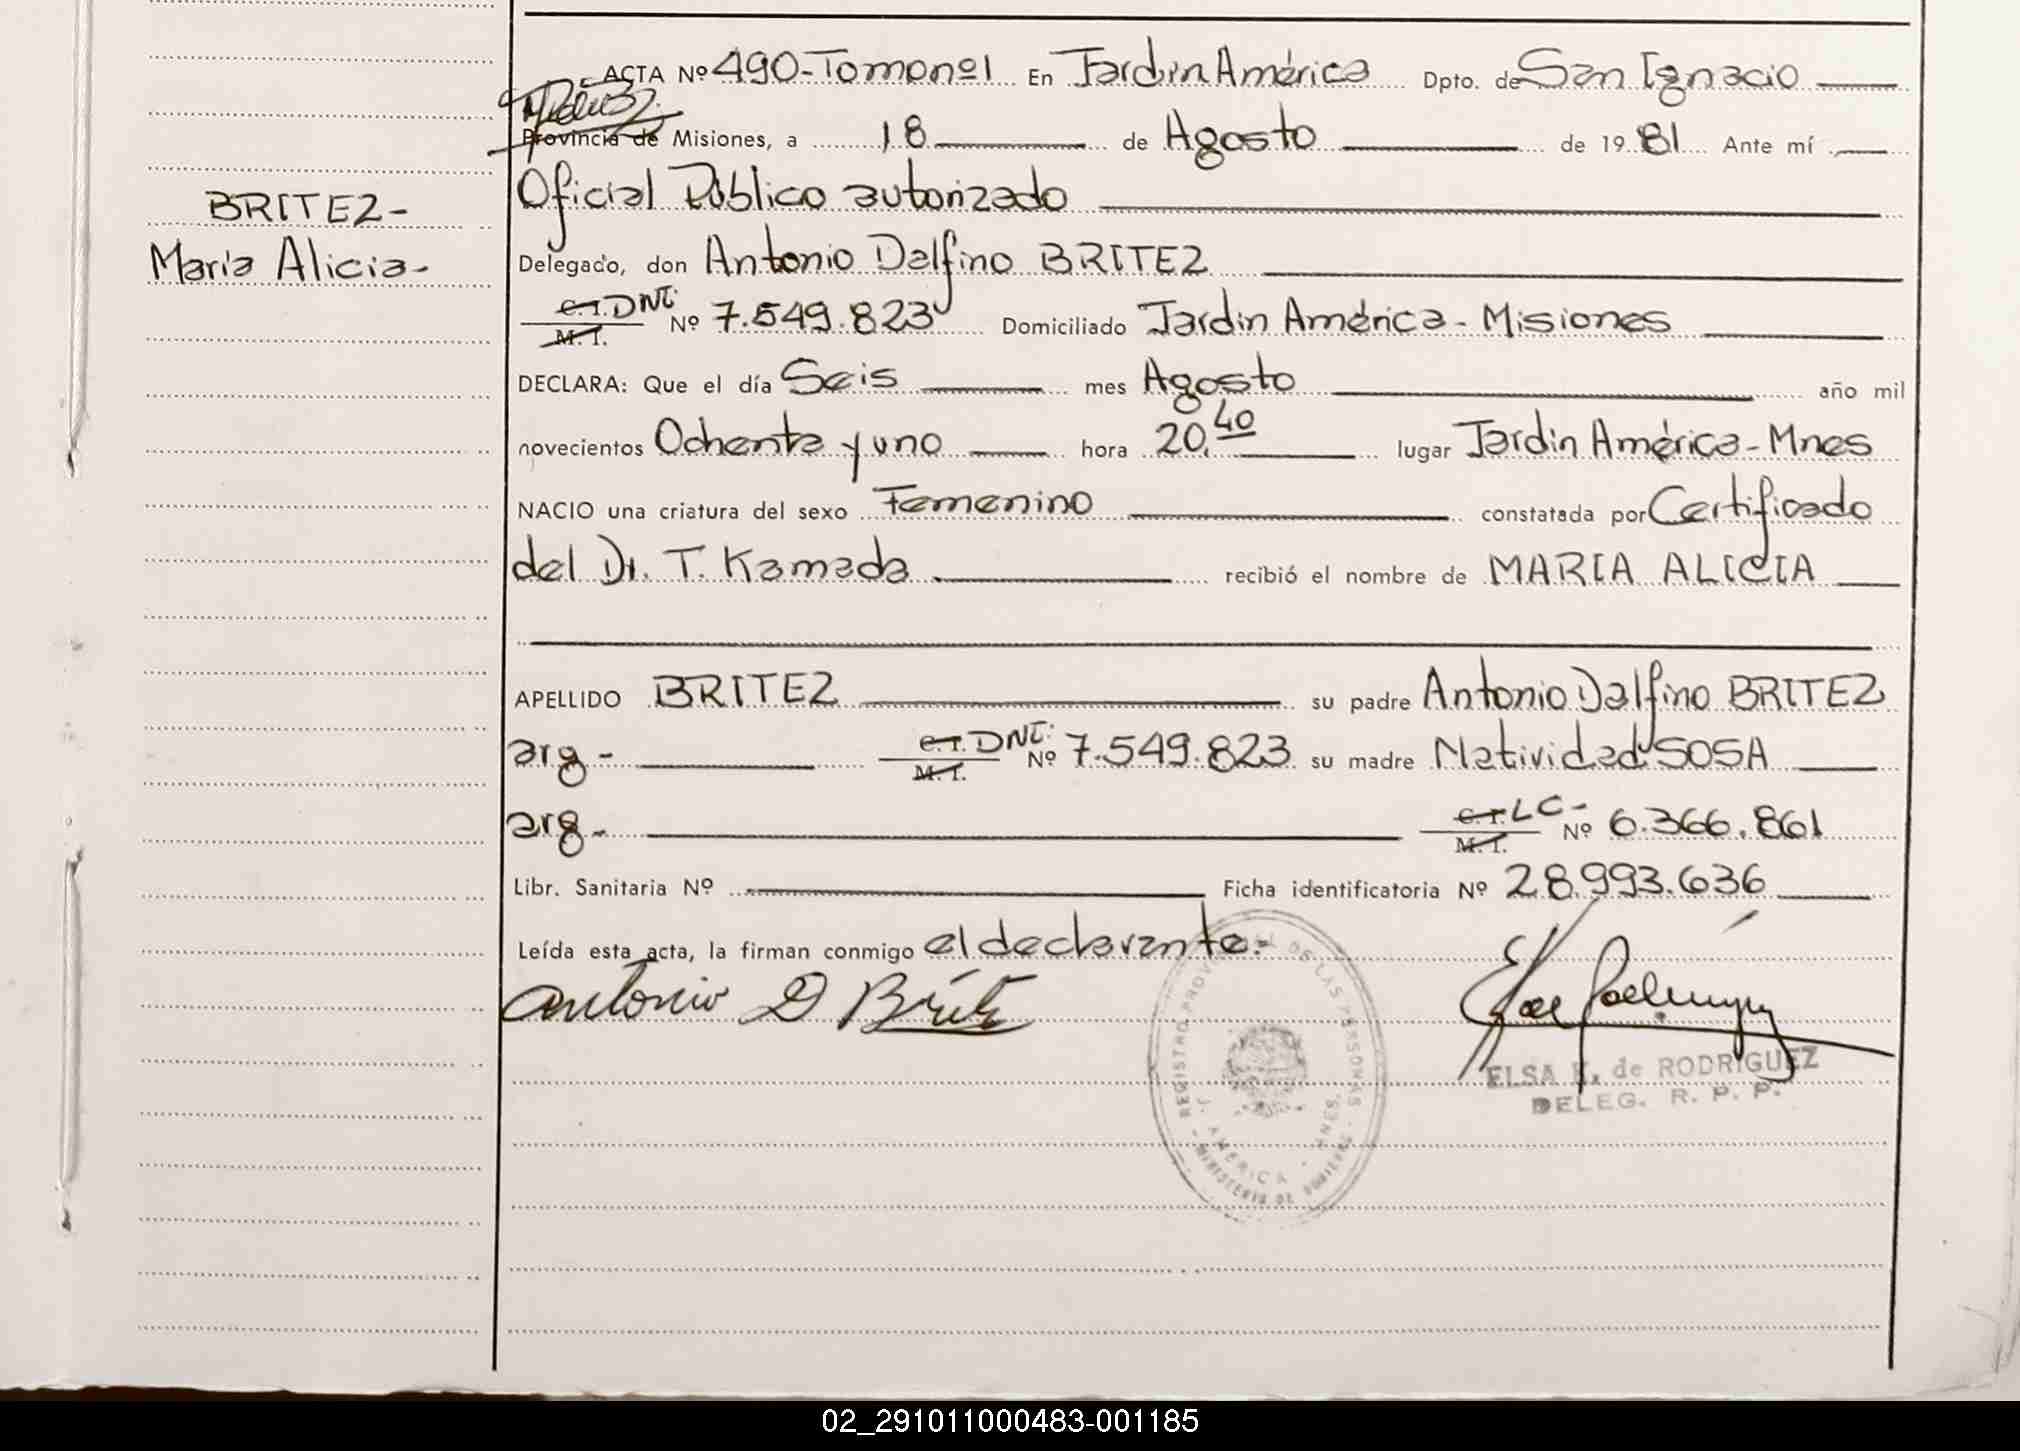 ACTA Nº 490-Tomo nº1 En Jardin América Dpto. de San Ignacio
Provincia de Misiones, a 18 de Agosto de 1981 Ante mí
Oficial Público autorizado
BRITEZ-
Maria Alicia-
Delegado, don Antonio Delfino BRITEZ
C.I. DNI: M.I. Nº 7.549.823 Domiciliado Jardin América - Misiones
DECLARA: Que el día Seis mes Agosto año mil
novecientos Ochenta y uno hora 20,40 lugar Jardin América-Mnes
NACIO una criatura del sexo Femenino constatada por Certificado
del Dr. T. Kamada recibió el nombre de MARIA ALICIA
APELLIDO BRITEZ su padre Antonio Delfino BRITEZ
arg- C.I. DNI: M.I. Nº 7.549.823 su madre Natividad SOSA
arg- C.I. LC- M.I. Nº 6.366.861
Libr. Sanitaria Nº Ficha identificatoria Nº 28.993.636
Leída esta acta, la firman conmigo el declarante.-
Antonio D Britez
REGISTRO PROVINCIAL DE LAS PERSONAS
J. AMERICA - MNES.
MINISTERIO DE GOBIERNO
ELSA de RODRIGUEZ
DELEG. R. P. P.
02_291011000483-001185